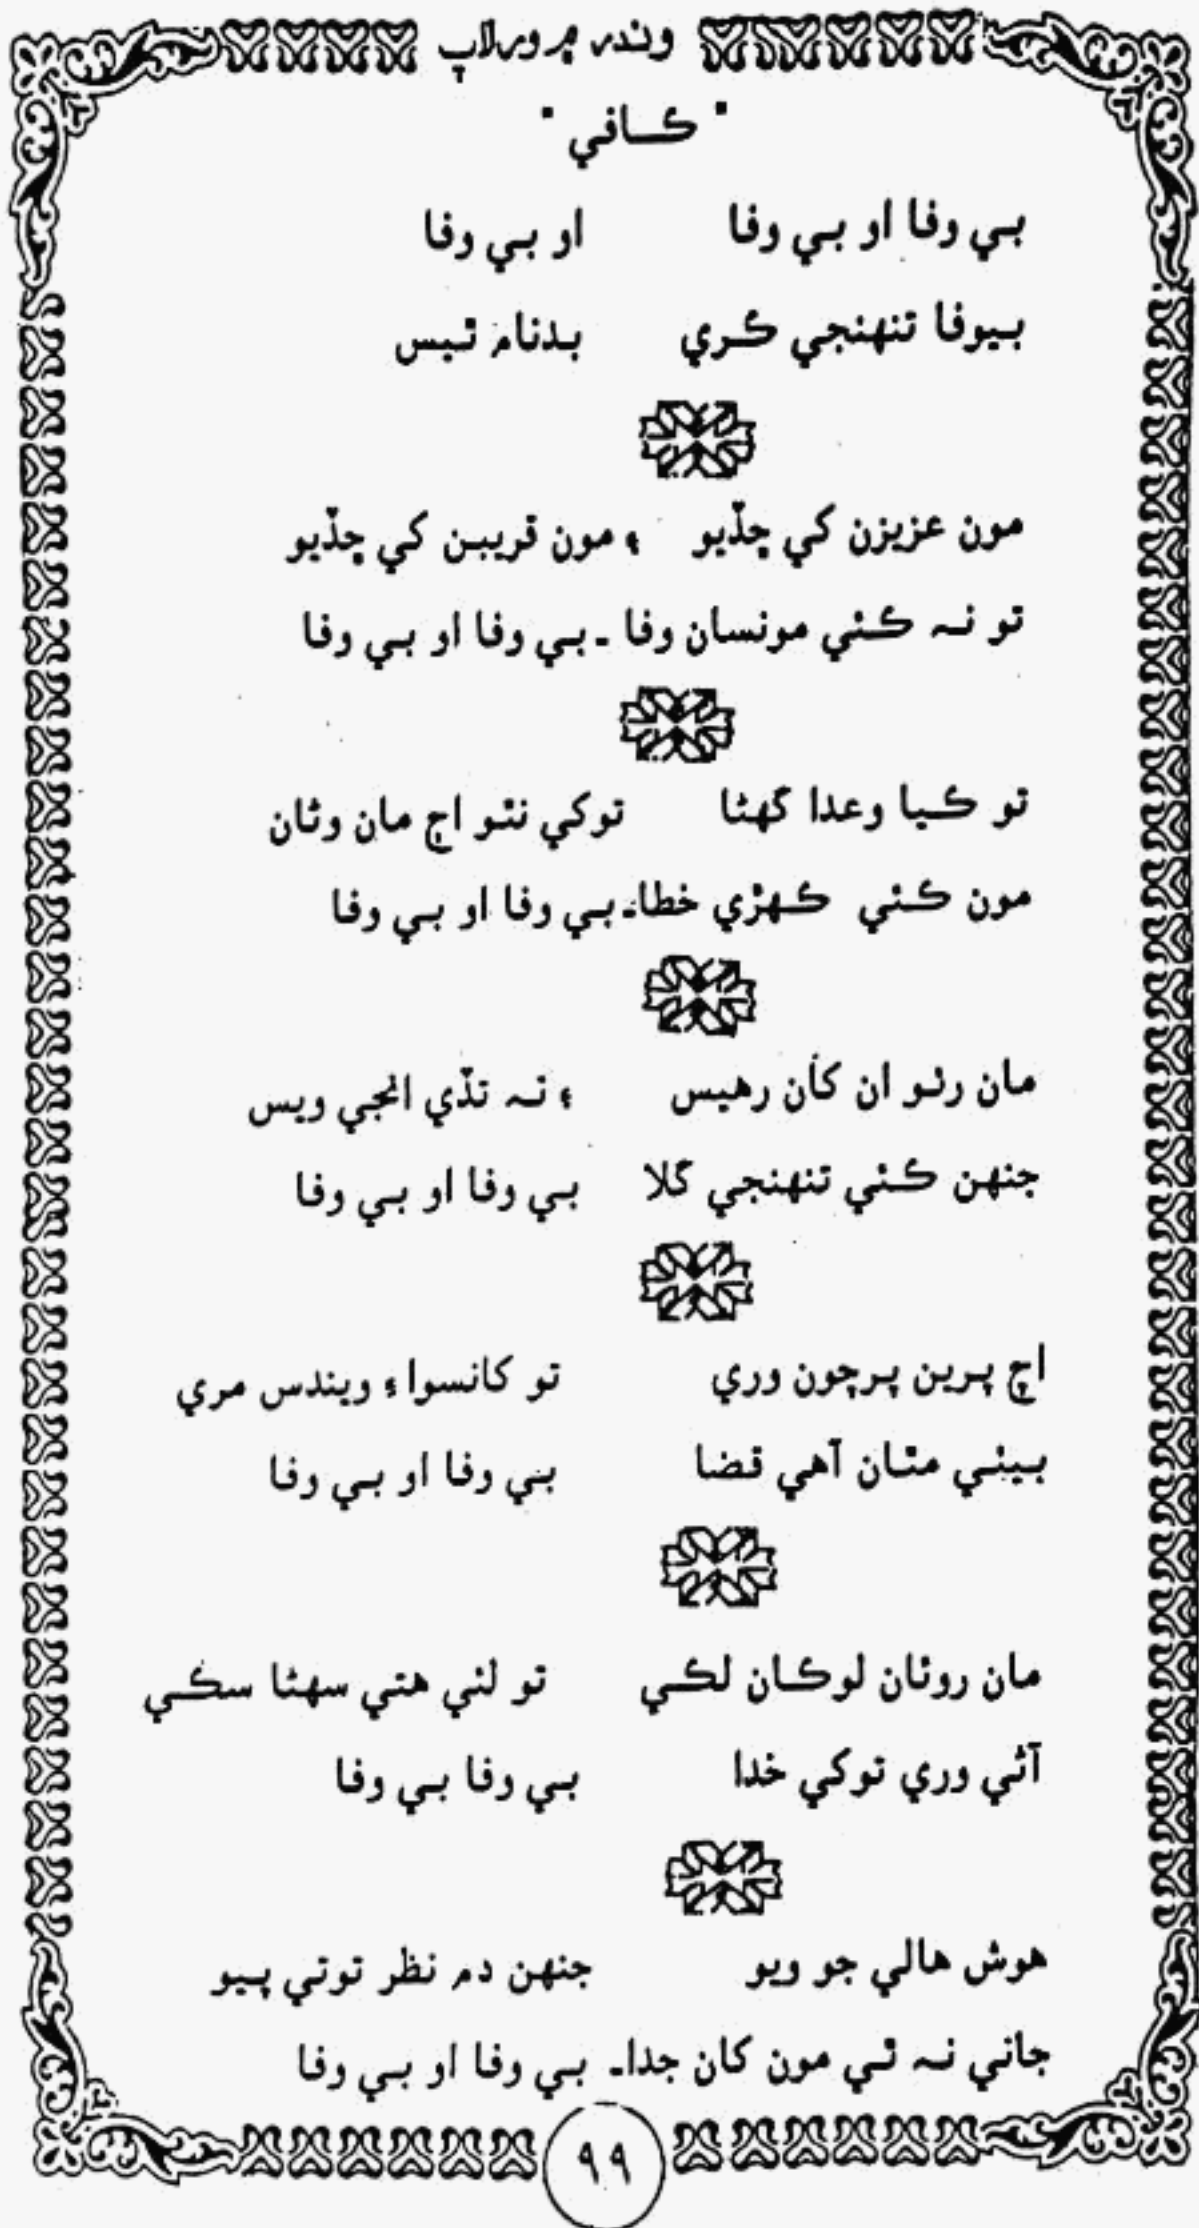 وندر ۾ ورلاپ
" ڪافي "
بي وفا او بي وفا او بي وفا
بيوفا تنهنجي ڪري بدنام ٿيس
مون عزيزن کي ڇڏيو ۽ مون قريبن کي ڇڏيو
تو نہ ڪئي مونسان وفا ـ بي وفا او بي وفا
تو ڪيا وعدا گهڻا توکي نٿو اڄ مان وڻان
مون ڪئي ڪهڙي خطا۔ بي وفا او بي وفا
مان رٺو ان کان رهيس ۽ نہ تڏي انجي ويس
جنهن ڪئي تنهنجي گلا بي وفا او بي وفا
اچ پرين پرچون وري تو کانسواءِ ويندس مري
بيٺي مٿان آهي قضا بي وفا او بي وفا
مان روئان لوڪان لڪي تو لئي هتي سهڻا سڪي
آڻي وري توکي خدا بي وفا بي وفا
هوش هالي جو ويو جنهن دم نظر توتي پيو
جاني نہ ٿي مون کان جدا۔ بي وفا او بي وفا
۹۹